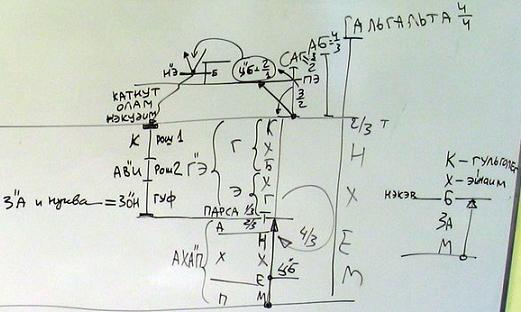 ГАЛЬГАЛЬТА 4/4
АБ=4/3
САГ=3/2
Н"Э Б
ЦБ=2/1
ПЭ
3/2
КАТНУТ
ОЛАМ
НЭКУДИМ
2/3 Т
К РОШ 1 Г К
Х
АВ"И РОШ 2 Г"Э Б Н
Э Х
З"А и нуква = ЗОН ГУФ Г Х
ПАРСА 1/3 Т
2/3
А Н 4/3 Е
АХА"П Х Х
Е Ц"Б М
П М
К - ГУЛЬГОЛЕТ
Х - ЭЙНАИМ
НЭКЭВ Б
ЗА
М